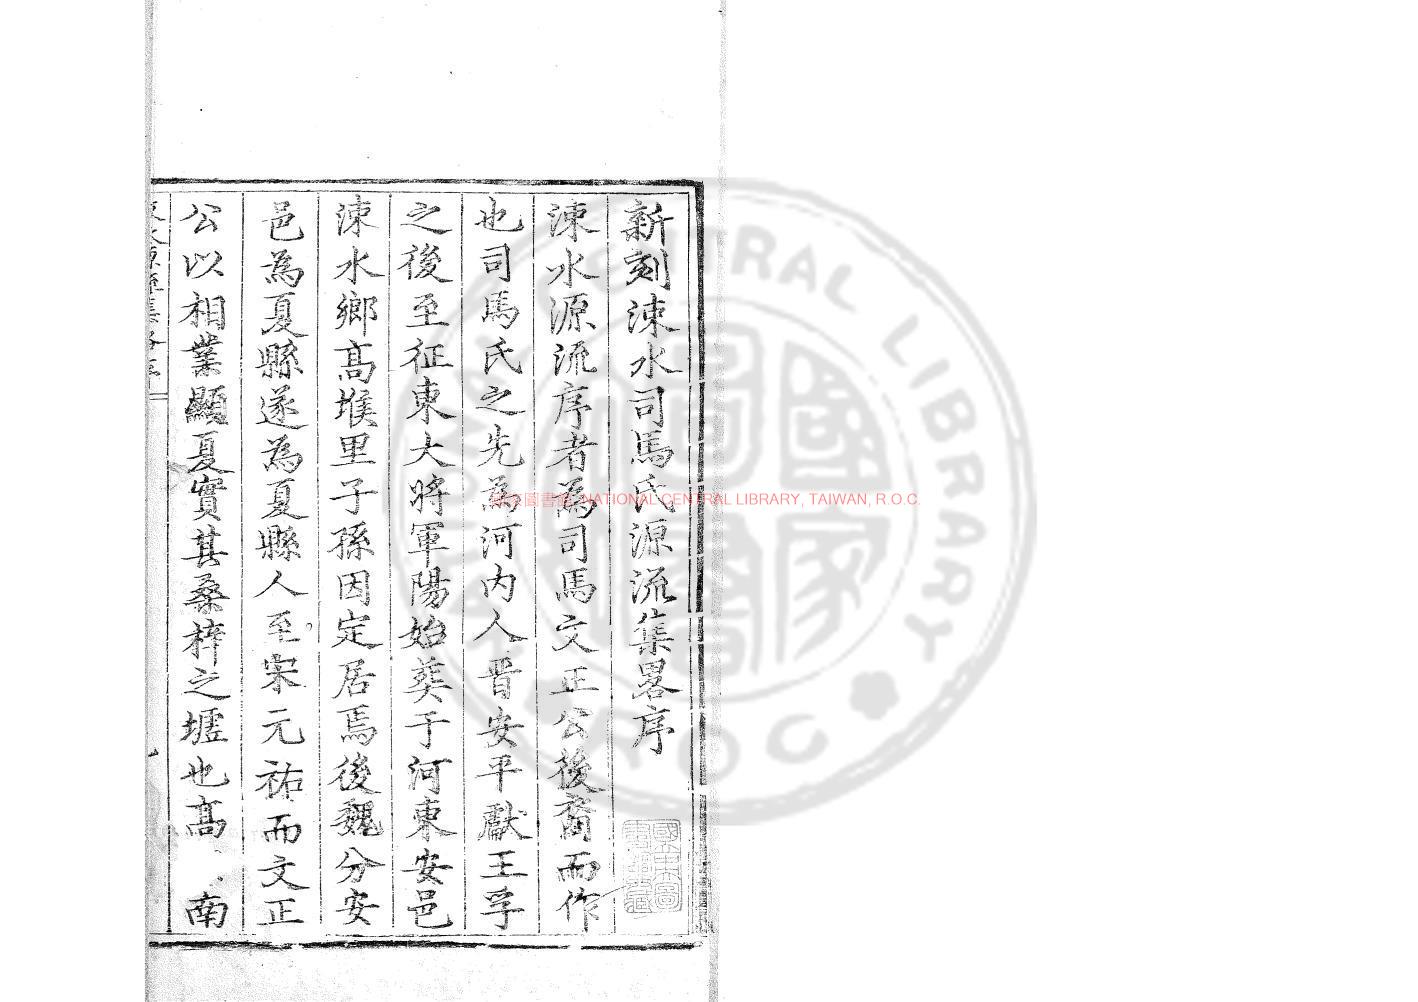 新刻涑水司馬氏源流集畧序
涑水源流序者為司馬文正公後裔而作
也司馬氏之先為河內人晉安平獻王孚
之後至征東大將軍陽始葬于河東安邑
涑水鄉高堠里子孫因定居焉後魏分安
邑為夏縣遂為夏縣人至宋元祐而文正
公以相業顯夏實其桑梓之墟也髙 南
國家圖書館 NATIONAL CENTRAL LIBRARY, TAIWAN, R.O.C.
NATIONAL CENTRAL LIBRARY
R.O.C.
國家圖書